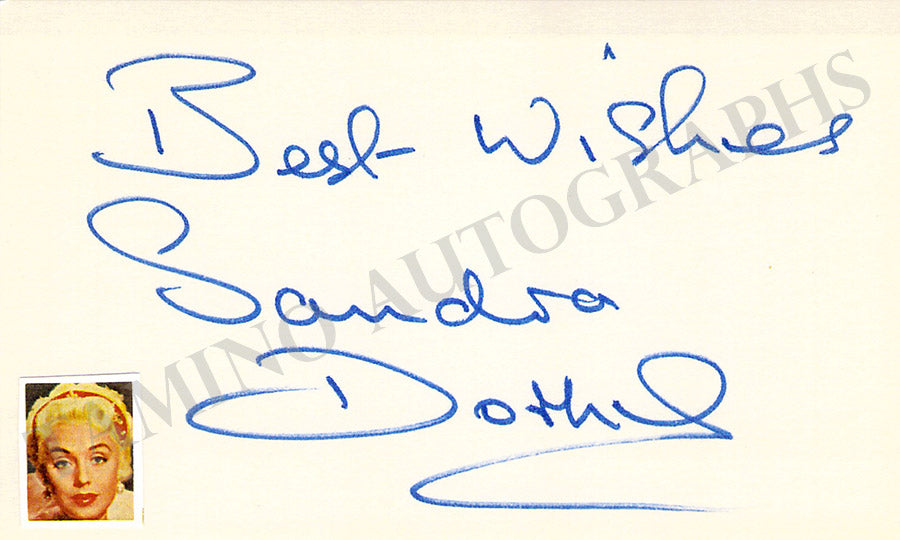 Best Wishes
Sandra
Dorne
TAMINO AUTOGRAPHS